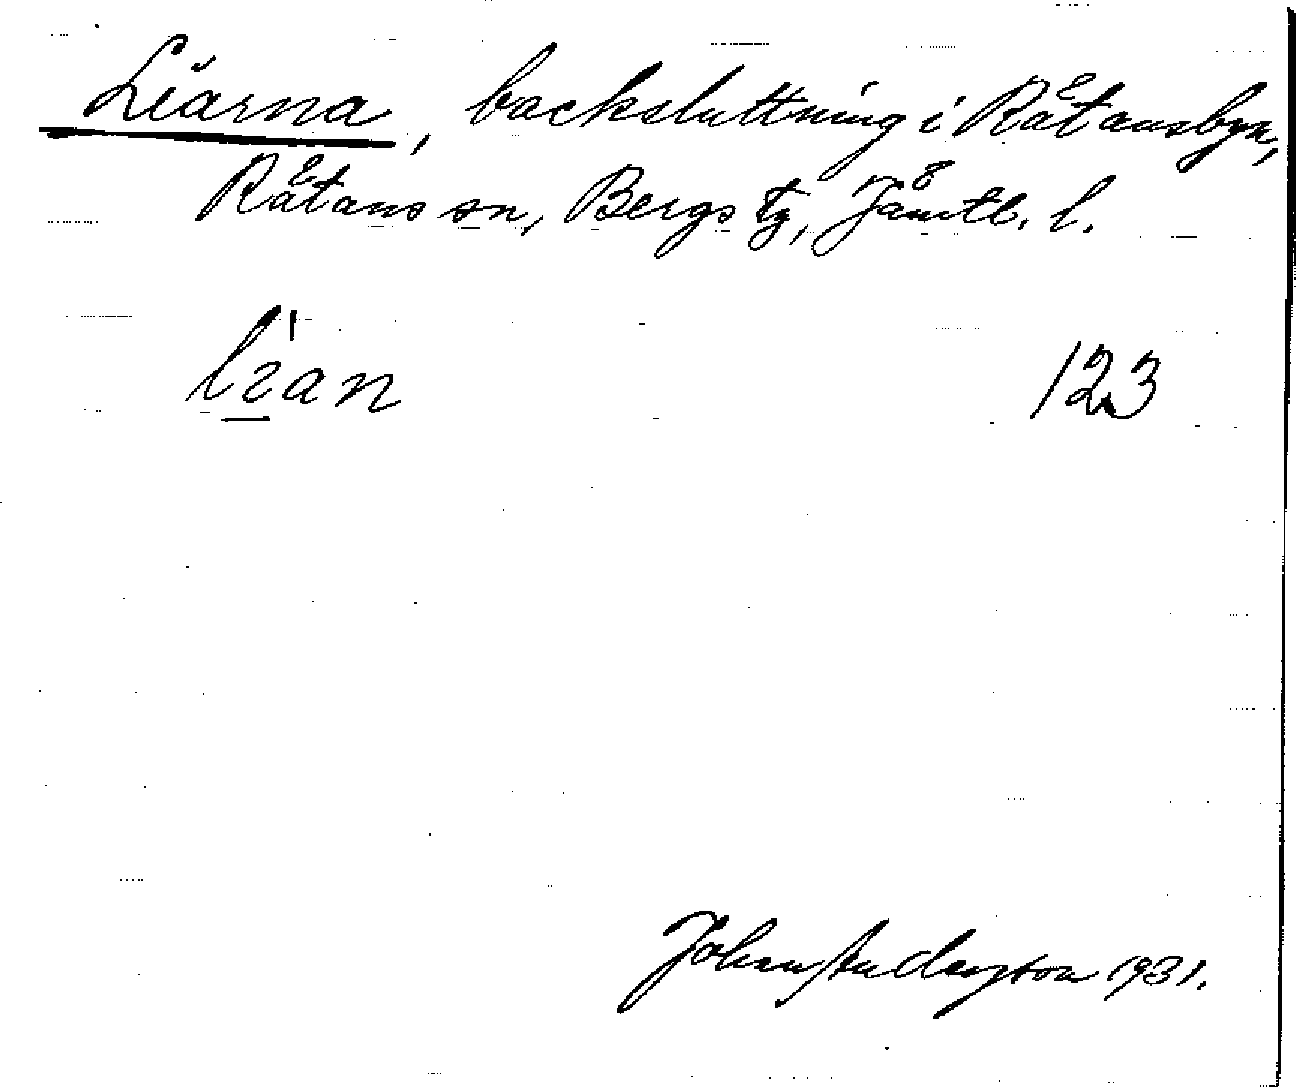 Liarna, backsluttning i Råtansbyn,
Råtans sn, Bergs tg, Jämtl. l.
123
Johan Anderzton 1931.